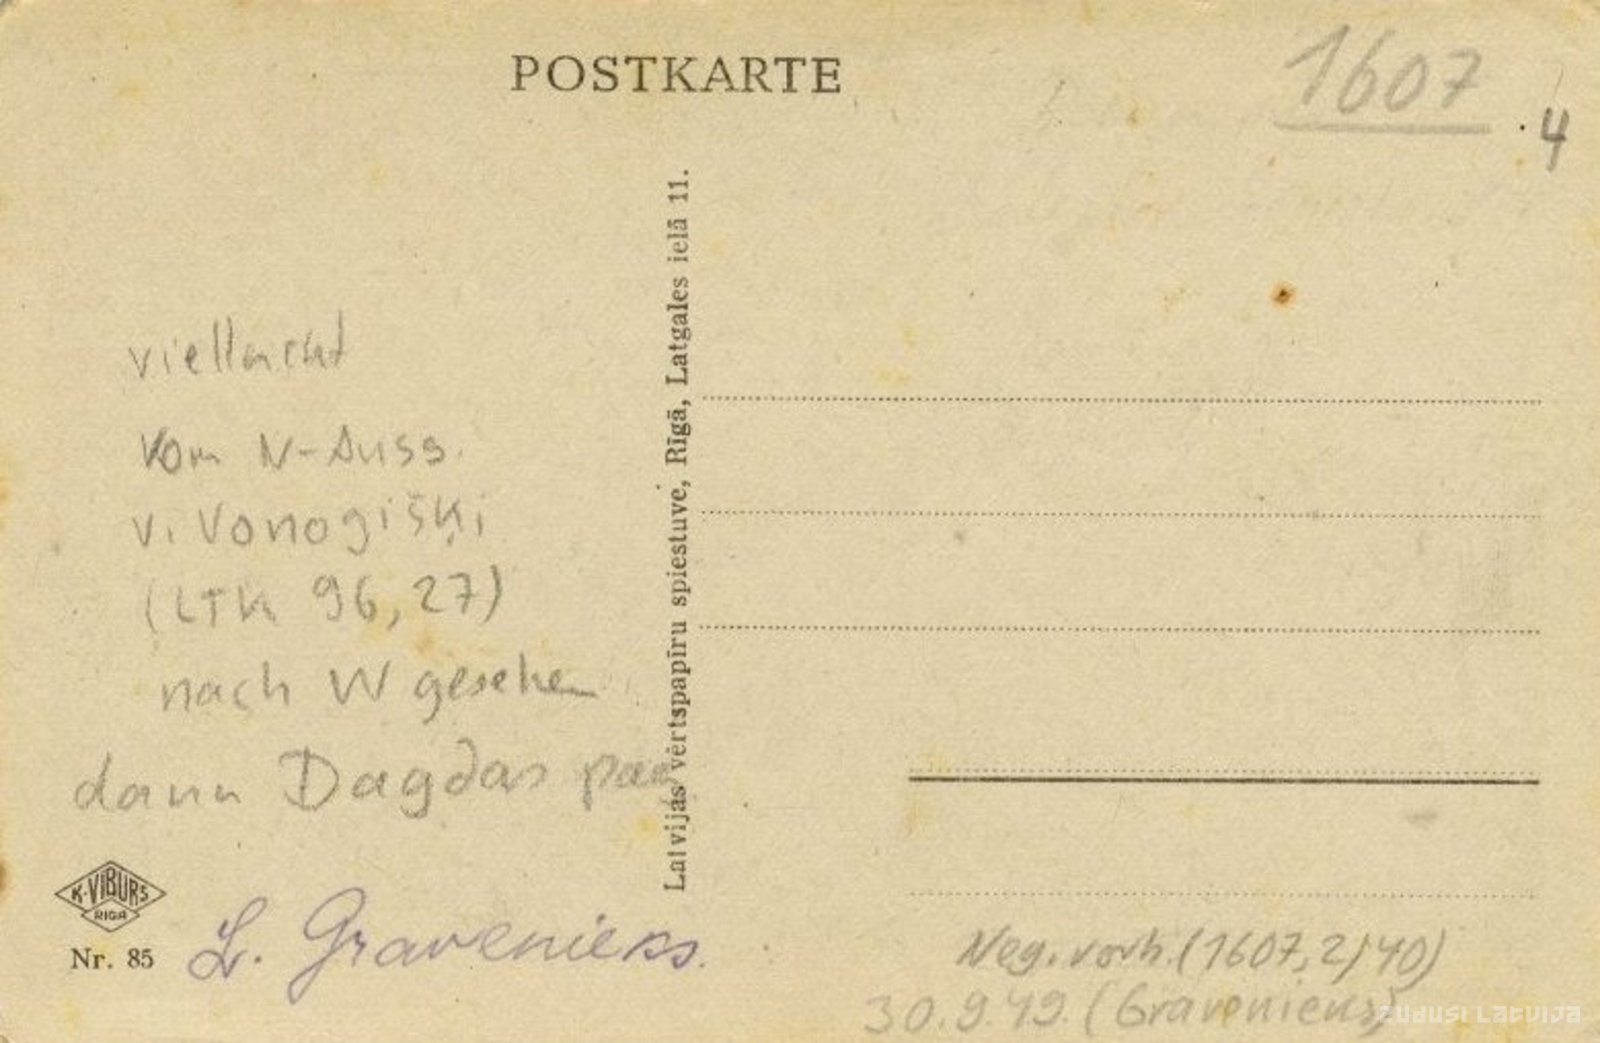 POSTKARTE
1607
4
vom N-Auss.
v. Vonogišķi
(LTK 96, 27)
nach W gesehen
dann Dagdas
Latvijas vērtspapīru spiestuve, Rīgā, Latgales ielā 11.
K·VIBURS
RIGA
Nr. 85
L. Gravenieks.
Neg. vorh. (1607, 2/40)
30.9.49. (Gravenieks)
zudusi Latvija